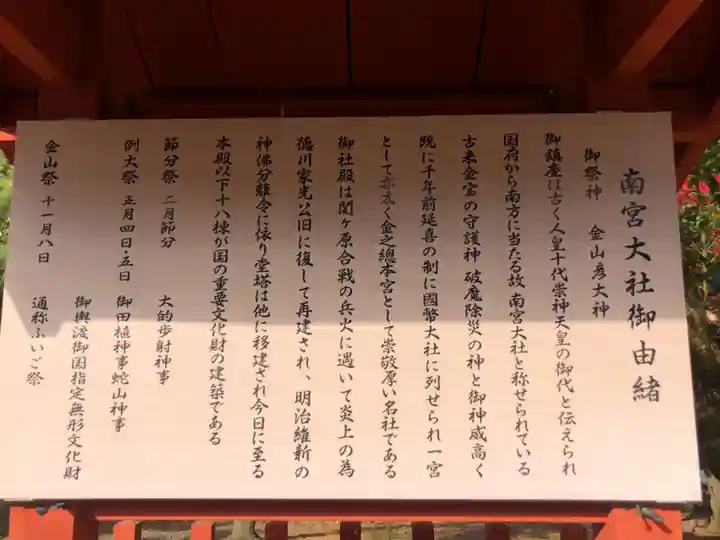 南宮大社御由緒
御祭神 金山彦大神
御鎮座は古く人皇十代崇神天皇の御代と伝えられ
国府から南方に当たる故 南宮大社と称せられている
古来金宝の守護神 破魔除災の神と御神威高く
既に千年前延喜の制に國幣大社に列せられ一宮
として亦永く金之總本宮として崇敬厚い名社である
御社殿は関ヶ原合戦の兵火に遇いて炎上の為
徳川家光公旧に復して再建され、明治維新の
神佛分離令に依り堂塔は他に移建され今日に至る
本殿以下十八棟が国の重要文化財の建築である
節分祭 二月節分 大的歩射神事
例大祭 五月四日・五日 御田植神事蛇山神事
御輿渡御国指定無形文化財
金山祭 十一月八日 通称ふいご祭